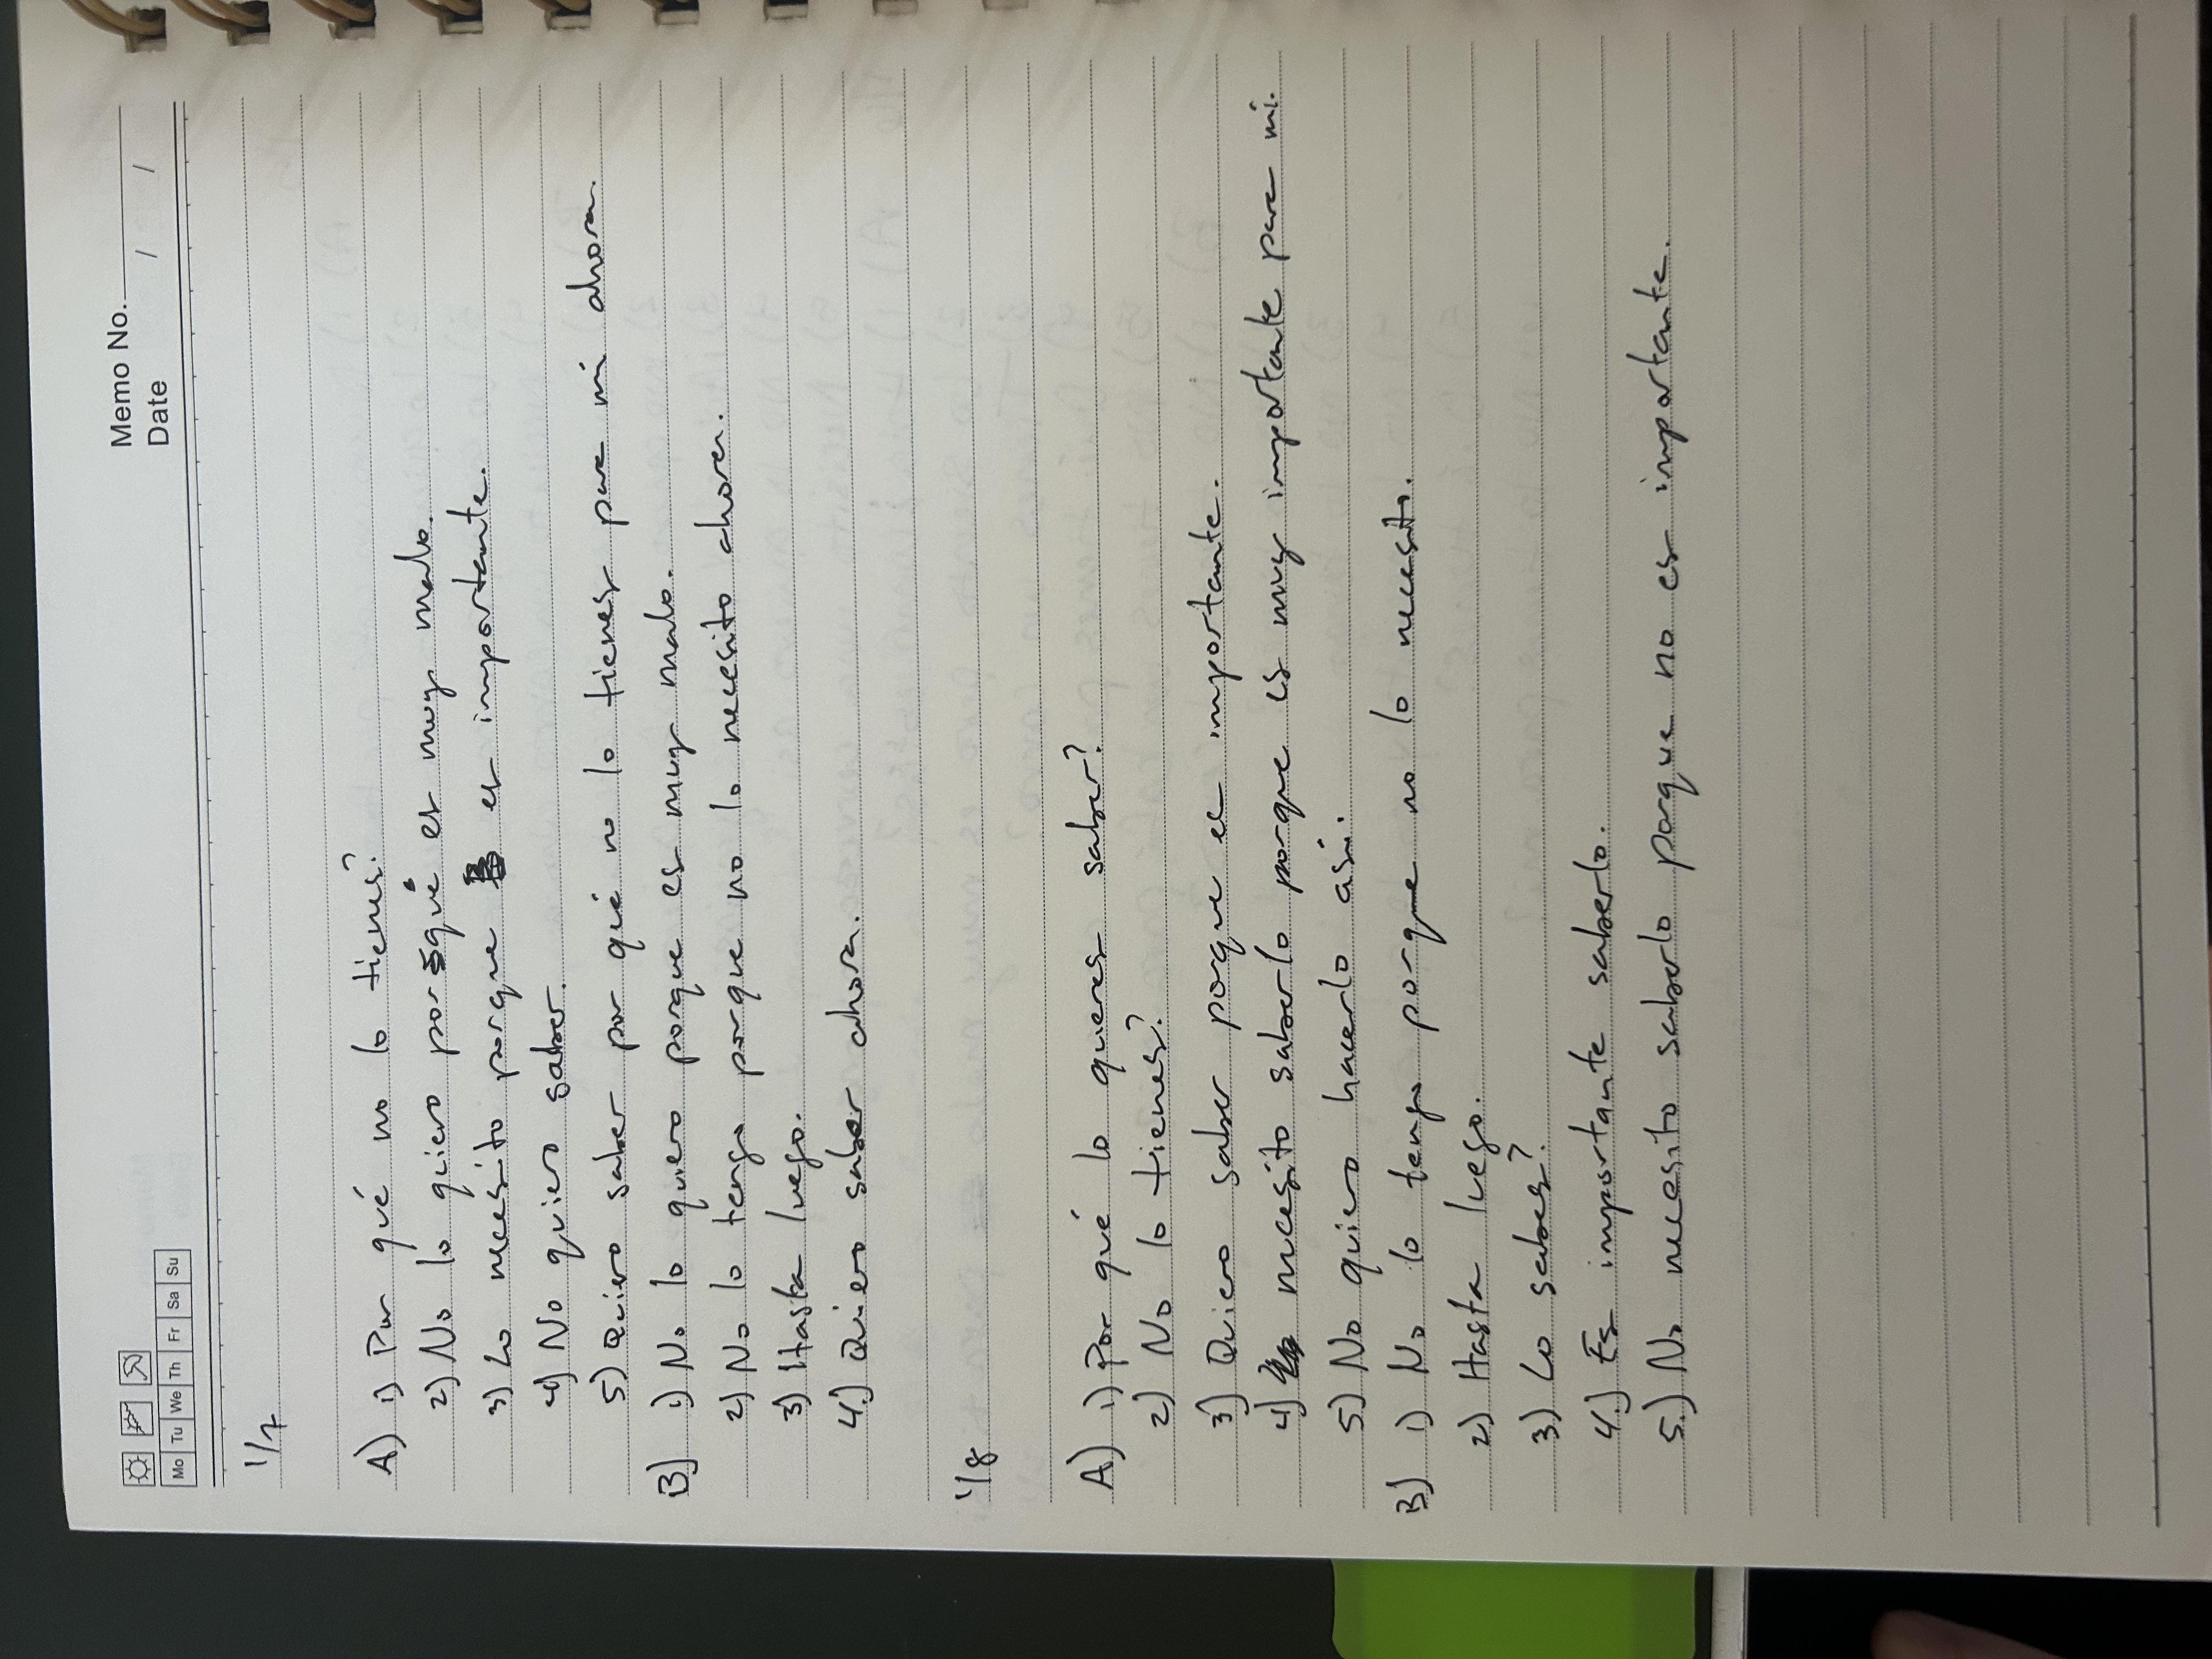 Memo No.
Mo Tu We Th Fr Sa Su
Date / /
1/7
A) 1) Por qué no lo tienes?
2) No lo quiero porqué es muy malo.
3) Lo necesito porque es importante.
4) No quiero saber.
5) Quiero saber por qué no lo tienes para mi ahora.
B) 1) No lo quiero porque es muy malo.
2) No lo tengo porque no lo necesito ahora.
3) Hasta luego.
4.) Quiero saber ahora.
1/8
A) 1) Por qué lo quieres saber?
2) No lo tienes?
3) Quiero saber porque es importante.
4) necesito saberlo porque es muy importante para mi.
5.) No quiero hacerlo asi.
B) 1) No lo tengo porque no lo necesito.
2) Hasta luego.
3) Lo sabes?
4.) Es importante saberlo.
5.) No necesito saberlo porque no es importante.